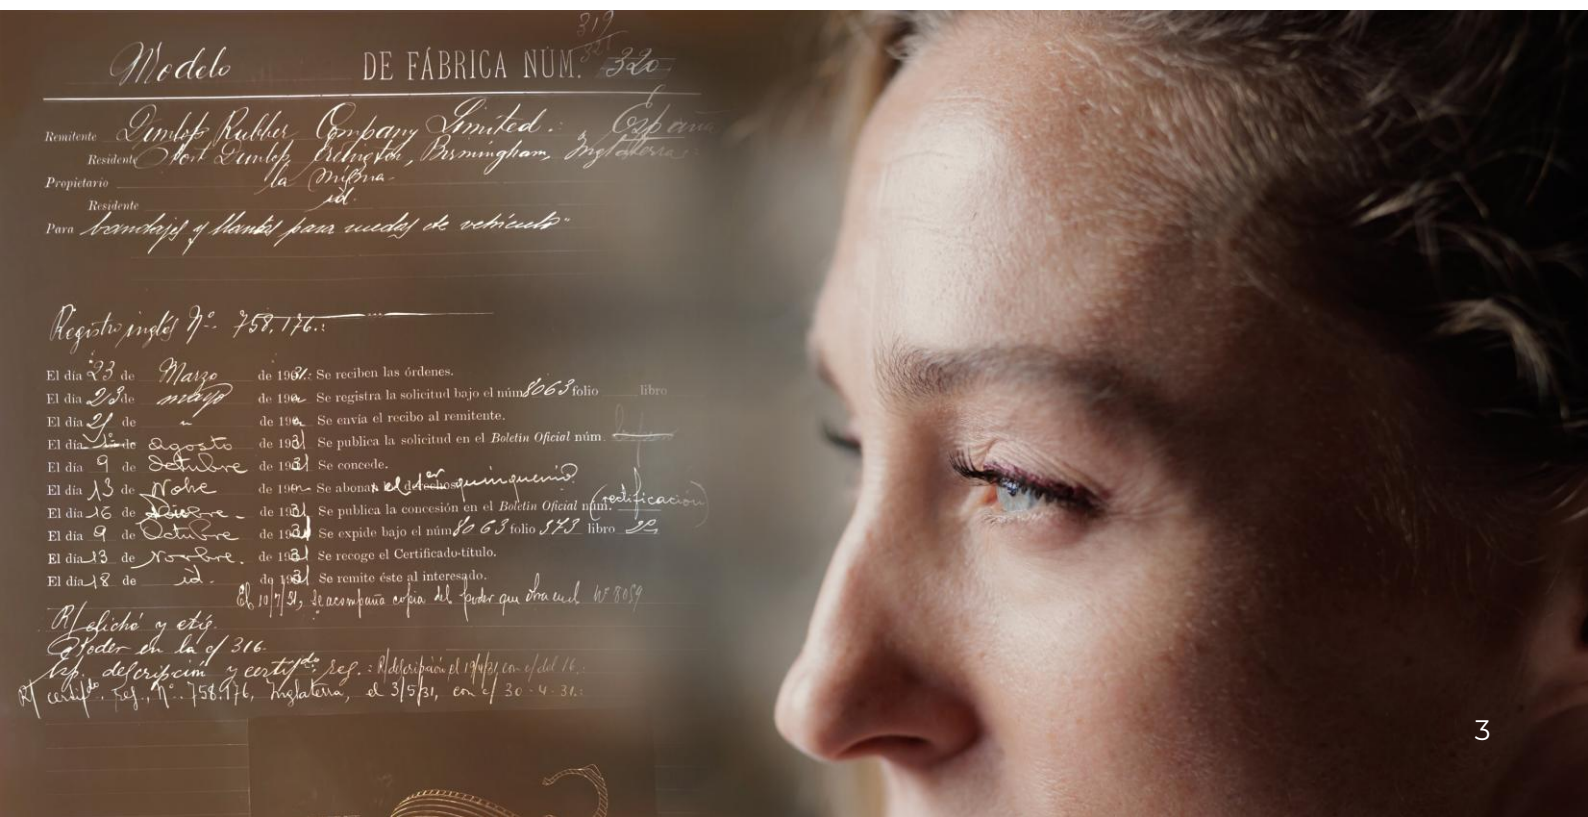 319
321
Modelo DE FÁBRICA NÚM. 320
Remitente Dunlop Rubber Company Limited.: España
Residente Fort Dunlop, Erdington, Birmingham, Inglaterra.-
Propietario la misma.-
Residente id.
Para bandajes y llantas para ruedas de vehículo"
Registro inglés Nº. 758.176.:
El día 23 de Marzo de 1931.: Se reciben las órdenes.
El día 23 de mayo de 190 Se registra la solicitud bajo el núm 8063 folio libro
El día 21 de " de 190 Se envía el recibo al remitente.
El día 1º de agosto de 1931 Se publica la solicitud en el Boletín Oficial núm.
El día 9 de Octubre de 1931 Se concede.
El día 13 de Nobe de 190 Se abonan los derechos el 1er quinquenio
El día 16 de Dicbre. de 1931 Se publica la concesión en el Boletín Oficial núm. (rectificación)
El día 9 de Octubre de 1931 Se expide bajo el núm 8063 folio 373 libro 32
El día 13 de Novbre. de 1931 Se recoge el Certificado-título.
El día 18 de id. de 1931 Se remite éste al interesado.
El 10/7/31, se acompaña copia del poder que obra en el Nº 8059
R/ cliché y etiq.
Poder en la c/ 316.
Esp. descripción y certifdo. reg.: R/ descripción el 19/4/31, con c/ del 16.-
R/ certifdo. reg., Nº. 758.176, Inglaterra, el 3/5/31, con c/ 30-4-31.:
3